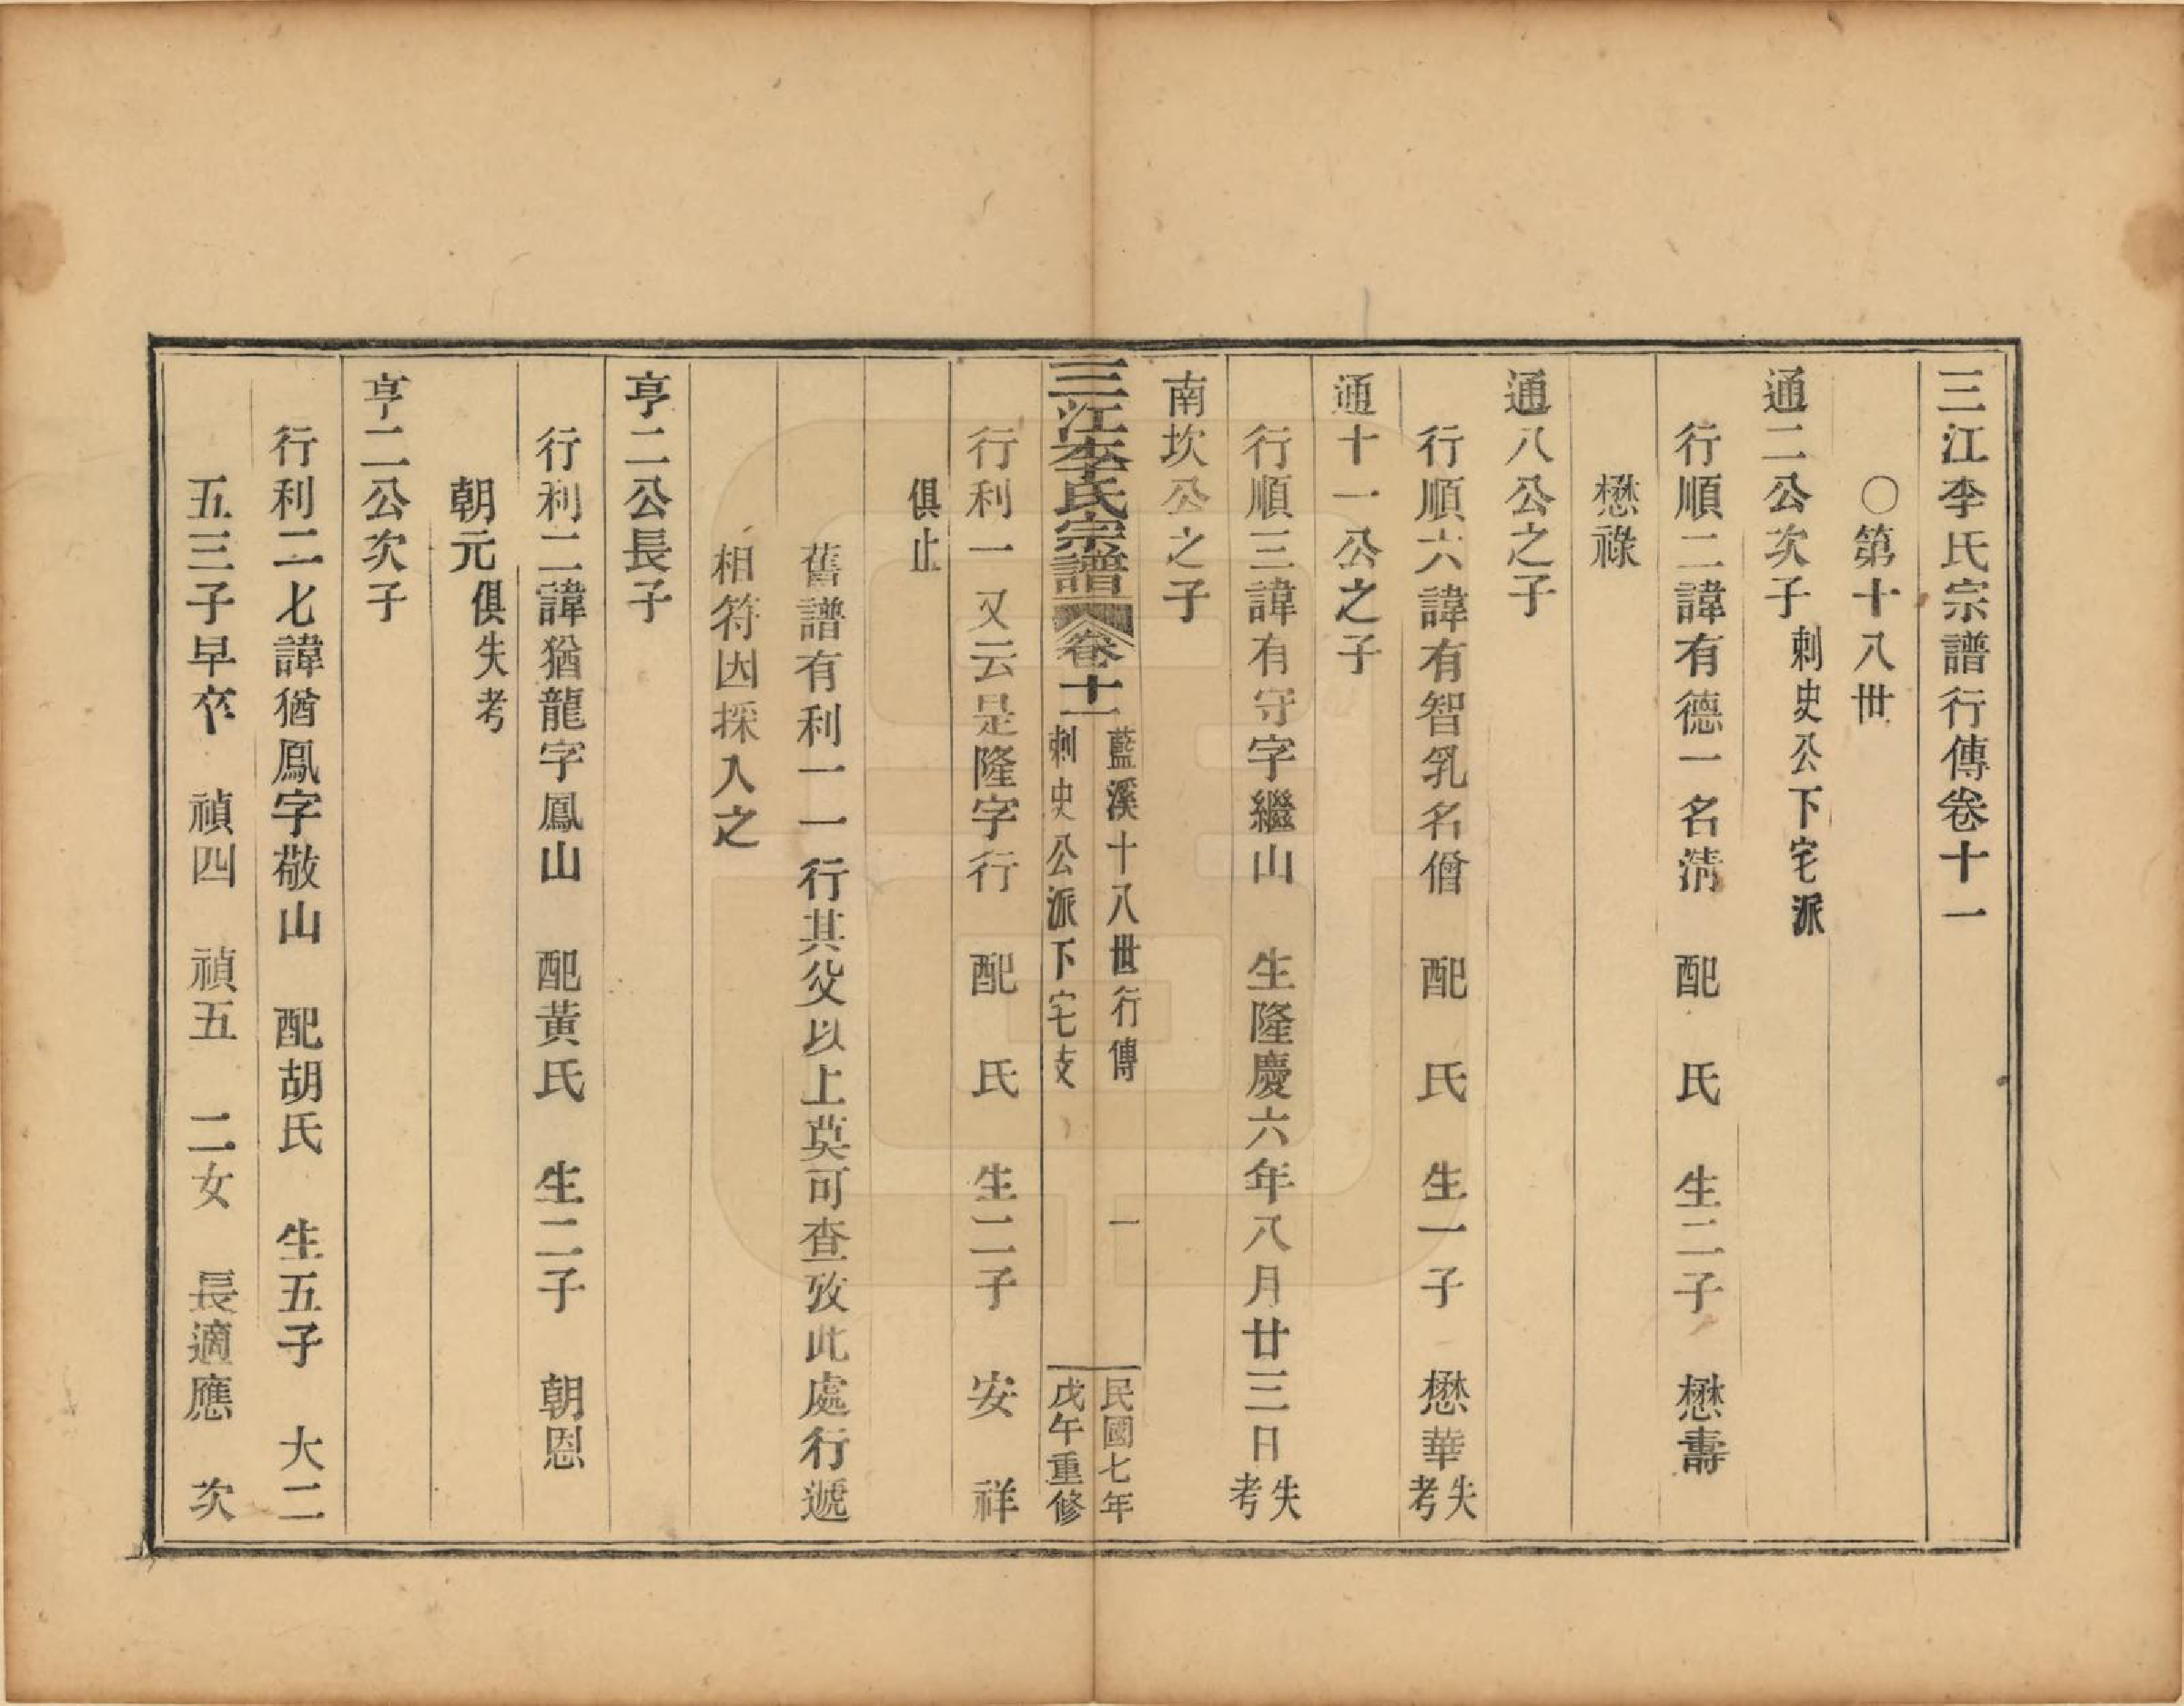 三江李氏宗譜行傳卷十一
〇第十八世
通二公次子刺史公下宅派
行順二諱有德一名清　配　氏　生二子　懋壽
懋祿
通八公之子
行順六諱有智乳名僧　配　氏　生一子　懋華失考
通十一公之子
行順三諱有守字繼山　生隆慶六年八月廿三日失考
南坎公之子
三江李氏宗譜　卷十一　藍溪十八世行傳　刺史公派下宅支　一　民國七年　戊午重修
行利一又云是隆字行　配　氏　生二子　安　祥
俱止
舊譜有利一一行其父以上莫可查攷此處行遞
相符因採入之
亨二公長子
行利二諱猶龍字鳳山　配黃氏　生二子　朝恩
朝元俱失考
亨二公次子
行利二七諱猶鳳字敬山　配胡氏　生五子　大二
五三子早卒　禎四　禎五　二女　長適應　次